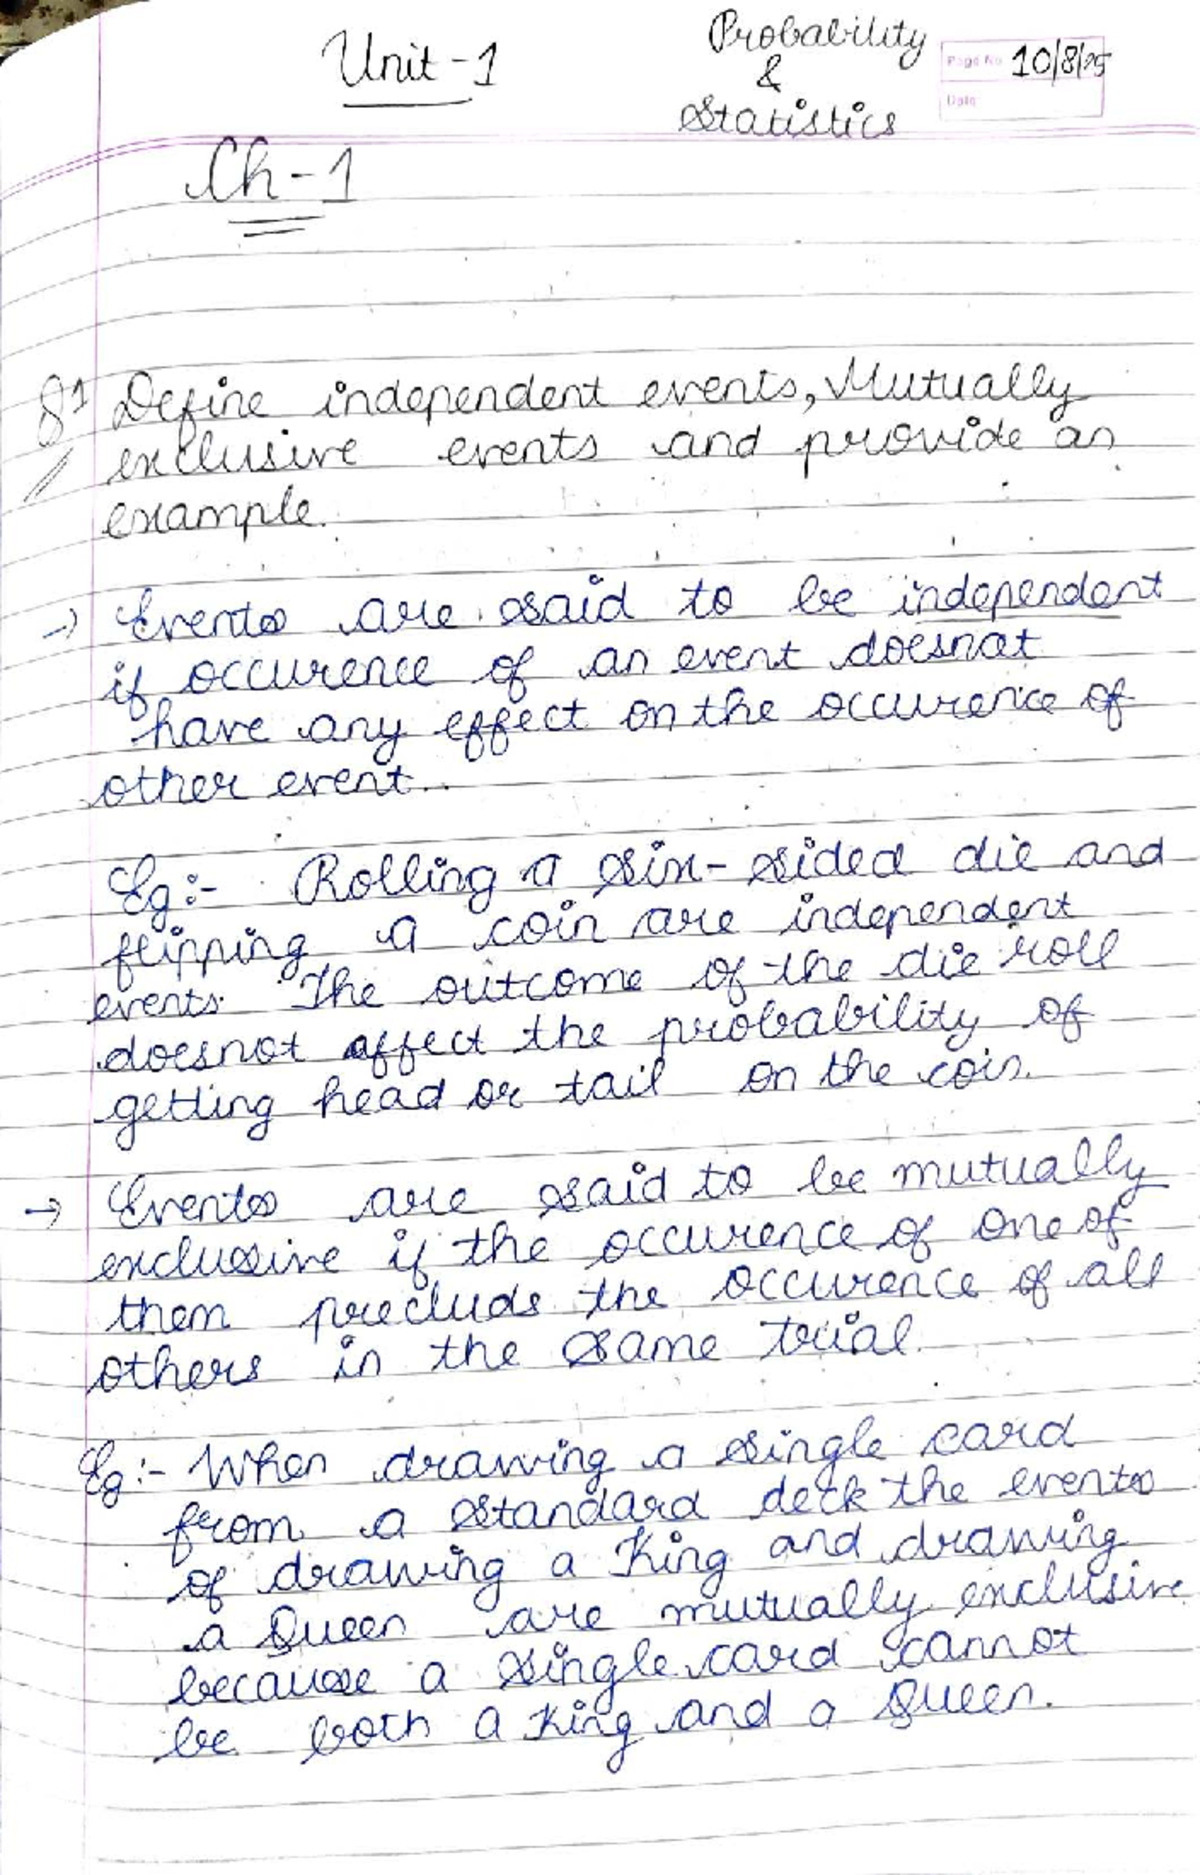 Unit-1
Probability
&
Statistics
Page No
10/8/25
Date
Ch-1
Q1 Define independent events, Mutually
exclusive events and provide an
example.
→ Events are said to be independent
if occurence of an event doesnot
have any effect on the occurence of
other event.
Eg:- Rolling a six-sided die and
flipping a coin are independent
events. The outcome of the die roll
doesnot affect the probability of
getting head or tail on the coin.
→ Events are said to be mutually
exclusive if the occurence of one of
them preclude the occurence of all
others in the same trial.
Eg:- When drawing a single card
from a standard deck the events
of drawing a King and drawing
a Queen are mutually exclusive
because a single card cannot
be both a King and a Queen.